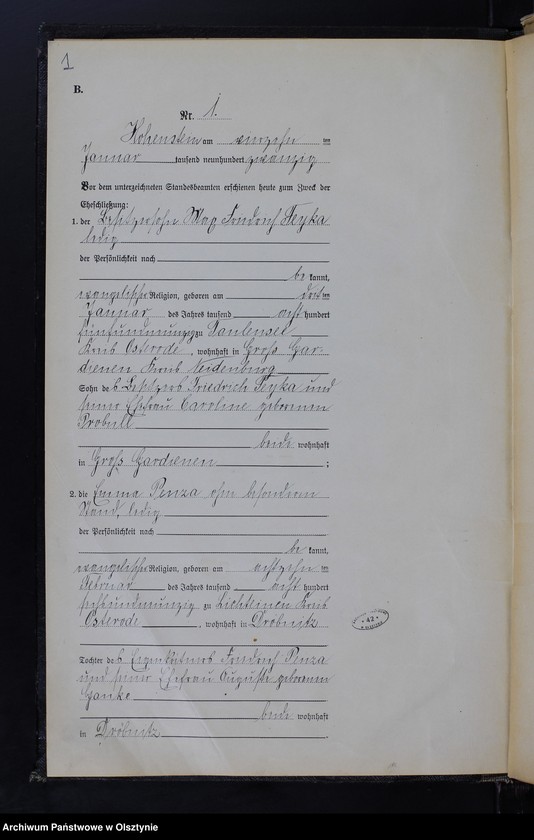 1
B.
Nr. 1.
Hohenstein am vierzehnten
Januar tausend neunhundert zwanzig
Vor dem unterzeichneten Standesbeamten erschienen heute zum Zweck der
Eheschließung:
1. der Besitzersohn Max Friedrich Feyka
ledig
der Persönlichkeit nach
be kannt,
evangelischer Religion, geboren am dritten
Januar des Jahres tausend acht hundert
fünfundneunzig zu Paulensee
Kreis Osterode, wohnhaft in Groß Gar-
dienen Kreis Neidenburg
Sohn des Besitzers Friedrich Feyka und
seiner Ehefrau Caroline geborenen
Probull
beide wohnhaft
in Groß Gardienen;
2. die Emma Penza ohne besonderen
Stand, ledig
der Persönlichkeit nach
be kannt,
evangelischer Religion, geboren am achtzehnten
Februar des Jahres tausend acht hundert
sechsundneunzig zu Lichteinen Kreis
Osterode, wohnhaft in Dröbnitz
42
Tochter des Eigenkätners Friedrich Penza
und seiner Ehefrau Auguste geborenen
beide wohnhaft
in Dröbnitz.
Archiwum Państwowe w Olsztynie